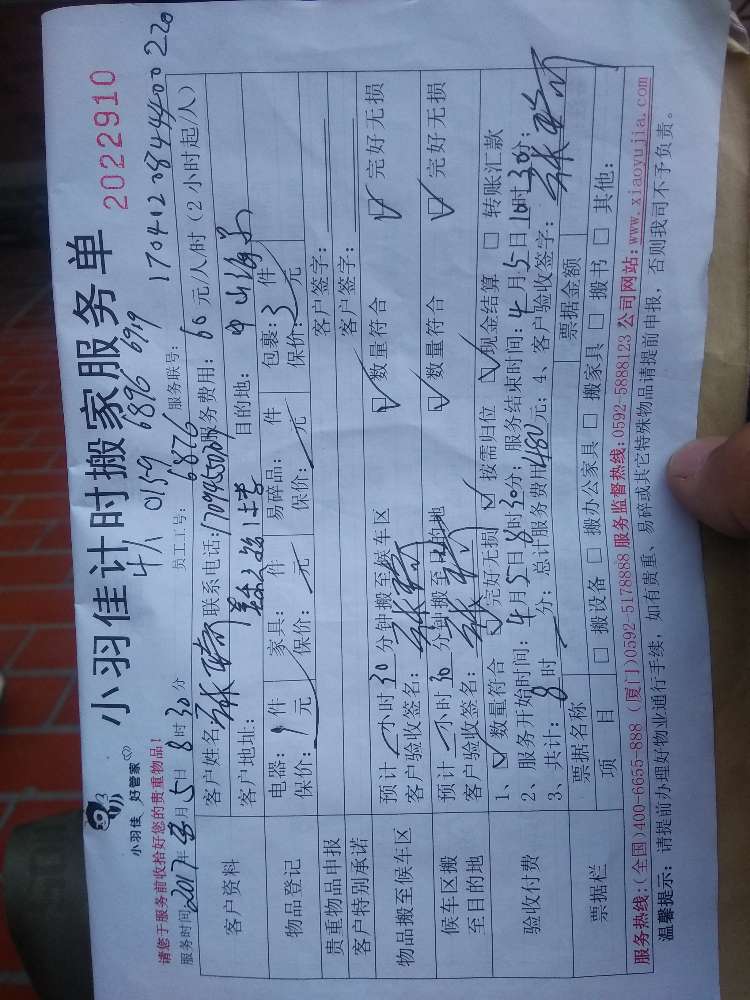 小羽佳 好管家
小羽佳计时搬家服务单
2022910
4人 0159 6896 6919 170412084440022o
请您于服务前收拾好您的贵重物品!
服务时间 2017年4月5日8时30分 员工工号: 6876 服务联号:
客户资料
客户姓名 联系电话: 服务费用: 60 元/人/时(2小时起/人)
客户地址: 目的地:
物品登记
电器: 1 件 家具: 件 易碎品: 件 包裹: 3 件
保价: 元 保价: 元 保价: 元 保价: 元
贵重物品申报 客户签字:
客户特别承诺 客户签字:
物品搬至候车区
预计 小时 30 分钟搬至候车区 数量符合 完好无损
客户验收签名:
候车区搬至目的地
预计 小时 30 分钟搬至目的地 数量符合 完好无损
客户验收签名:
验收付费
1、 数量符合 完好无损 按需归位 现金结算 转账汇款
2、服务开始时间: 4月5日8时30分; 服务结束时间: 4月5日10时30分;
3、共计: 8 时 分; 总计服务费用 480 元; 4、客户验收签字:
票据栏
票据名称 票据金额
项 目 搬设备 搬办公家具 搬家具 搬书 其他:
服务热线:(全国)400-6655-888 (厦门)0592-5178888 服务监督热线:0592-5888123 公司网站:www.xiaoyujia.com
温馨提示: 请提前办理好物业通行手续, 如有贵重、易碎或其它特殊物品请提前申报, 否则我司不予负责。